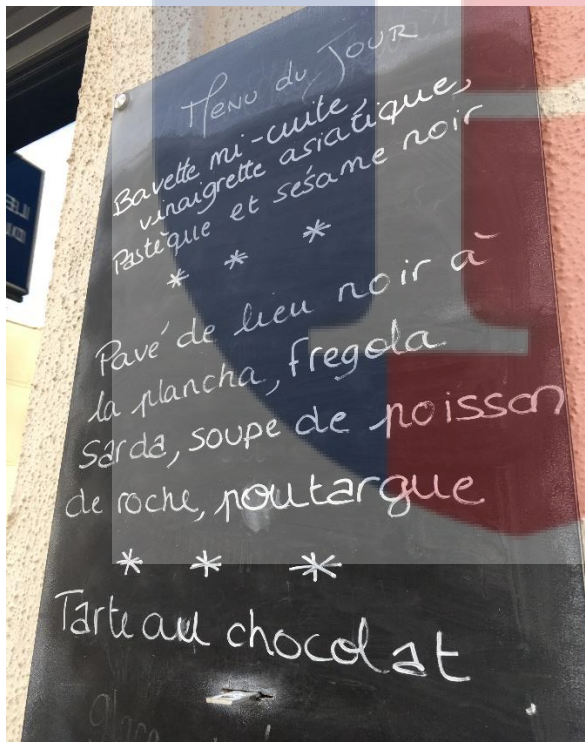 Menu du Jour
Bavette mi-cuite,
vinaigrette asiatique,
Pastèque et sésame noir
* * *
Pavé de lieu noir à
la plancha, fregola
sarda, soupe de poisson
de roche, poutargue
* * *
Tarte au chocolat